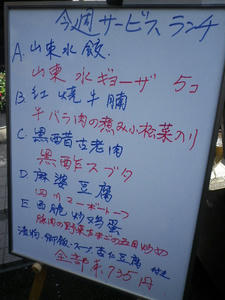 今週サービスランチ
A.山東水餃.
山東水ギョーザ 5コ
B.紅焼牛腩
牛バラ肉の煮み小松菜入り
C 黒醋古老肉
黒酢スブタ
D 麻婆豆腐
四川マーボートーフ
E 西脆炒鶏蛋
豚肉の野菜玉子の五目炒め
漬物.御飯.スープ.杏仁豆腐 付き
全部¥.735円